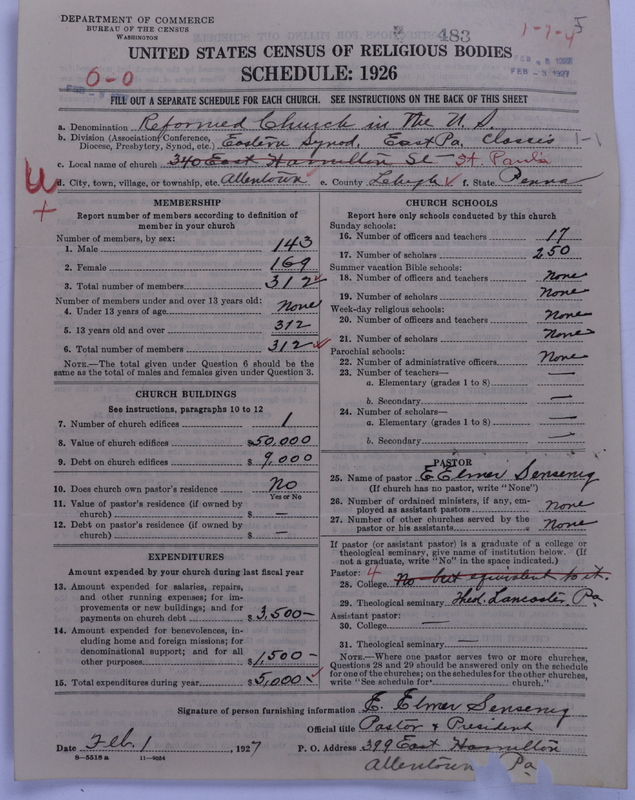 DEPARTMENT OF COMMERCE
BUREAU OF THE CENSUS
WASHINGTON
483
1-7-4
5
UNITED STATES CENSUS OF RELIGIOUS BODIES
SCHEDULE: 1926
0-0
FEB -3 1927
FILL OUT A SEPARATE SCHEDULE FOR EACH CHURCH. SEE INSTRUCTIONS ON THE BACK OF THIS SHEET
a. Denomination Reformed Church in the U S
b. Division (Association, Conference, Diocese, Presbytery, Synod, etc.) Eastern Synod, East Pa. Classis 1-1
c. Local name of church 340 East Hamilton St - St. Pauls
d. City, town, village, or township, etc. Allentown e. County Lehigh f. State Penna
MEMBERSHIP
Report number of members according to definition of member in your church
Number of members, by sex:
1. Male 143
2. Female 169
3. Total number of members 312
Number of members under and over 13 years old:
4. Under 13 years of age None
5. 13 years old and over 312
6. Total number of members 312
NOTE.—The total given under Question 6 should be the same as the total of males and females given under Question 3.
CHURCH BUILDINGS
See instructions, paragraphs 10 to 12
7. Number of church edifices 1
8. Value of church edifices $50,000
9. Debt on church edifices $ 9,000
10. Does church own pastor's residence No
Yes or No
11. Value of pastor's residence (if owned by church) $ —
12. Debt on pastor's residence (if owned by church) $ —
EXPENDITURES
Amount expended by your church during last fiscal year
13. Amount expended for salaries, repairs, and other running expenses; for improvements or new buildings; and for payments on church debt $3,500—
14. Amount expended for benevolences, including home and foreign missions; for denominational support; and for all other purposes $1,500—
15. Total expenditures during year $5,000
CHURCH SCHOOLS
Report here only schools conducted by this church
Sunday schools:
16. Number of officers and teachers 17
17. Number of scholars 250
Summer vacation Bible schools:
18. Number of officers and teachers None
19. Number of scholars None
Week-day religious schools:
20. Number of officers and teachers None
21. Number of scholars None
Parochial schools:
22. Number of administrative officers None
23. Number of teachers—
a. Elementary (grades 1 to 8) —
b. Secondary —
24. Number of scholars—
a. Elementary (grades 1 to 8) —
b. Secondary —
PASTOR
25. Name of pastor E Elmer Sensenig
(If church has no pastor, write "None")
26. Number of ordained ministers, if any, employed as assistant pastors None
27. Number of other churches served by the pastor or his assistants None
If pastor (or assistant pastor) is a graduate of a college or theological seminary, give name of institution below. (If not a graduate, write "No" in the space indicated.)
Pastor: 4
28. College No - but equivalent to it.
29. Theological seminary Theol. Lancaster, Pa
Assistant pastor:
30. College —
31. Theological seminary —
NOTE.—Where one pastor serves two or more churches, Questions 28 and 29 should be answered only on the schedule for one of the churches; on the schedules for the other churches, write "See schedule for church."
Signature of person furnishing information E. Elmer Sensenig
Official title Pastor & President
Date Feb. 1, 1927 P. O. Address 399 East Hamilton
8—5518 a 11—9024
Allentown Pa